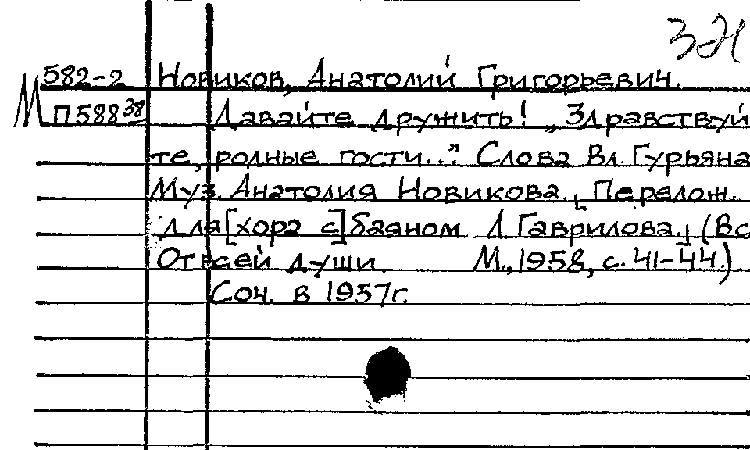 324
582-2 Новиков, Анатолий Григорьевич.
М П588 38 Давайте дружить! „Здравствуй
те, родные гости..." Слова Вл. Гурьяна
Муз. Анатолия Новикова. [Перелож.
для [хора с] баяном Л Гаврилова.] (Вс
От всей души. М., 1958, с. 41-44.)
Соч. в 1957г.